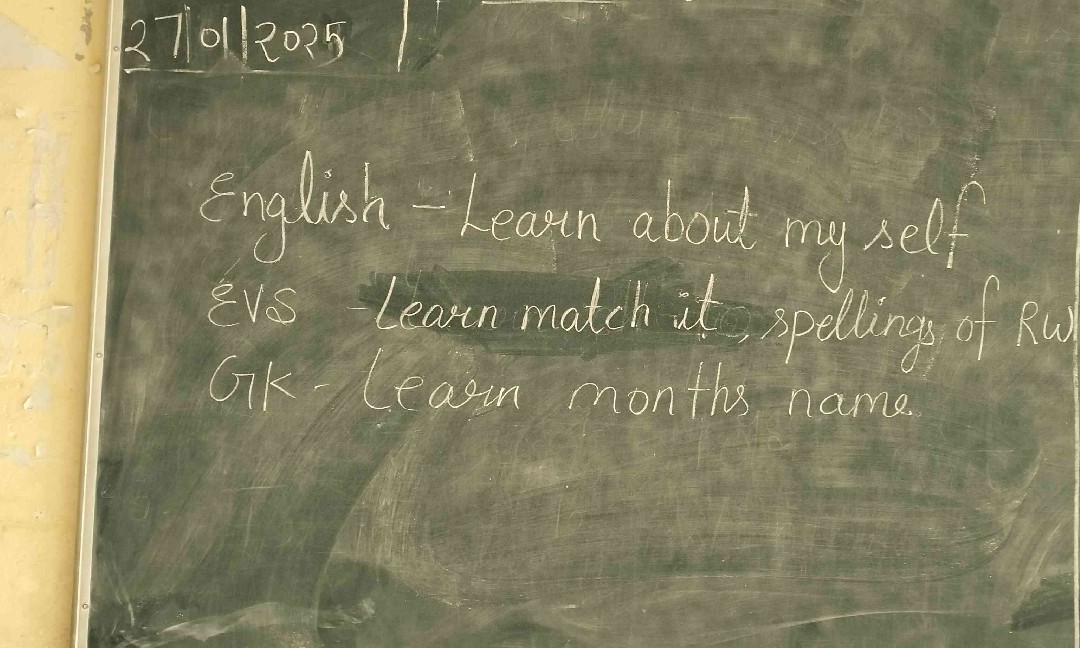 27/01/2025
English - Learn about my self
EVS - Learn match it, spellings of RW
GK - Learn months name